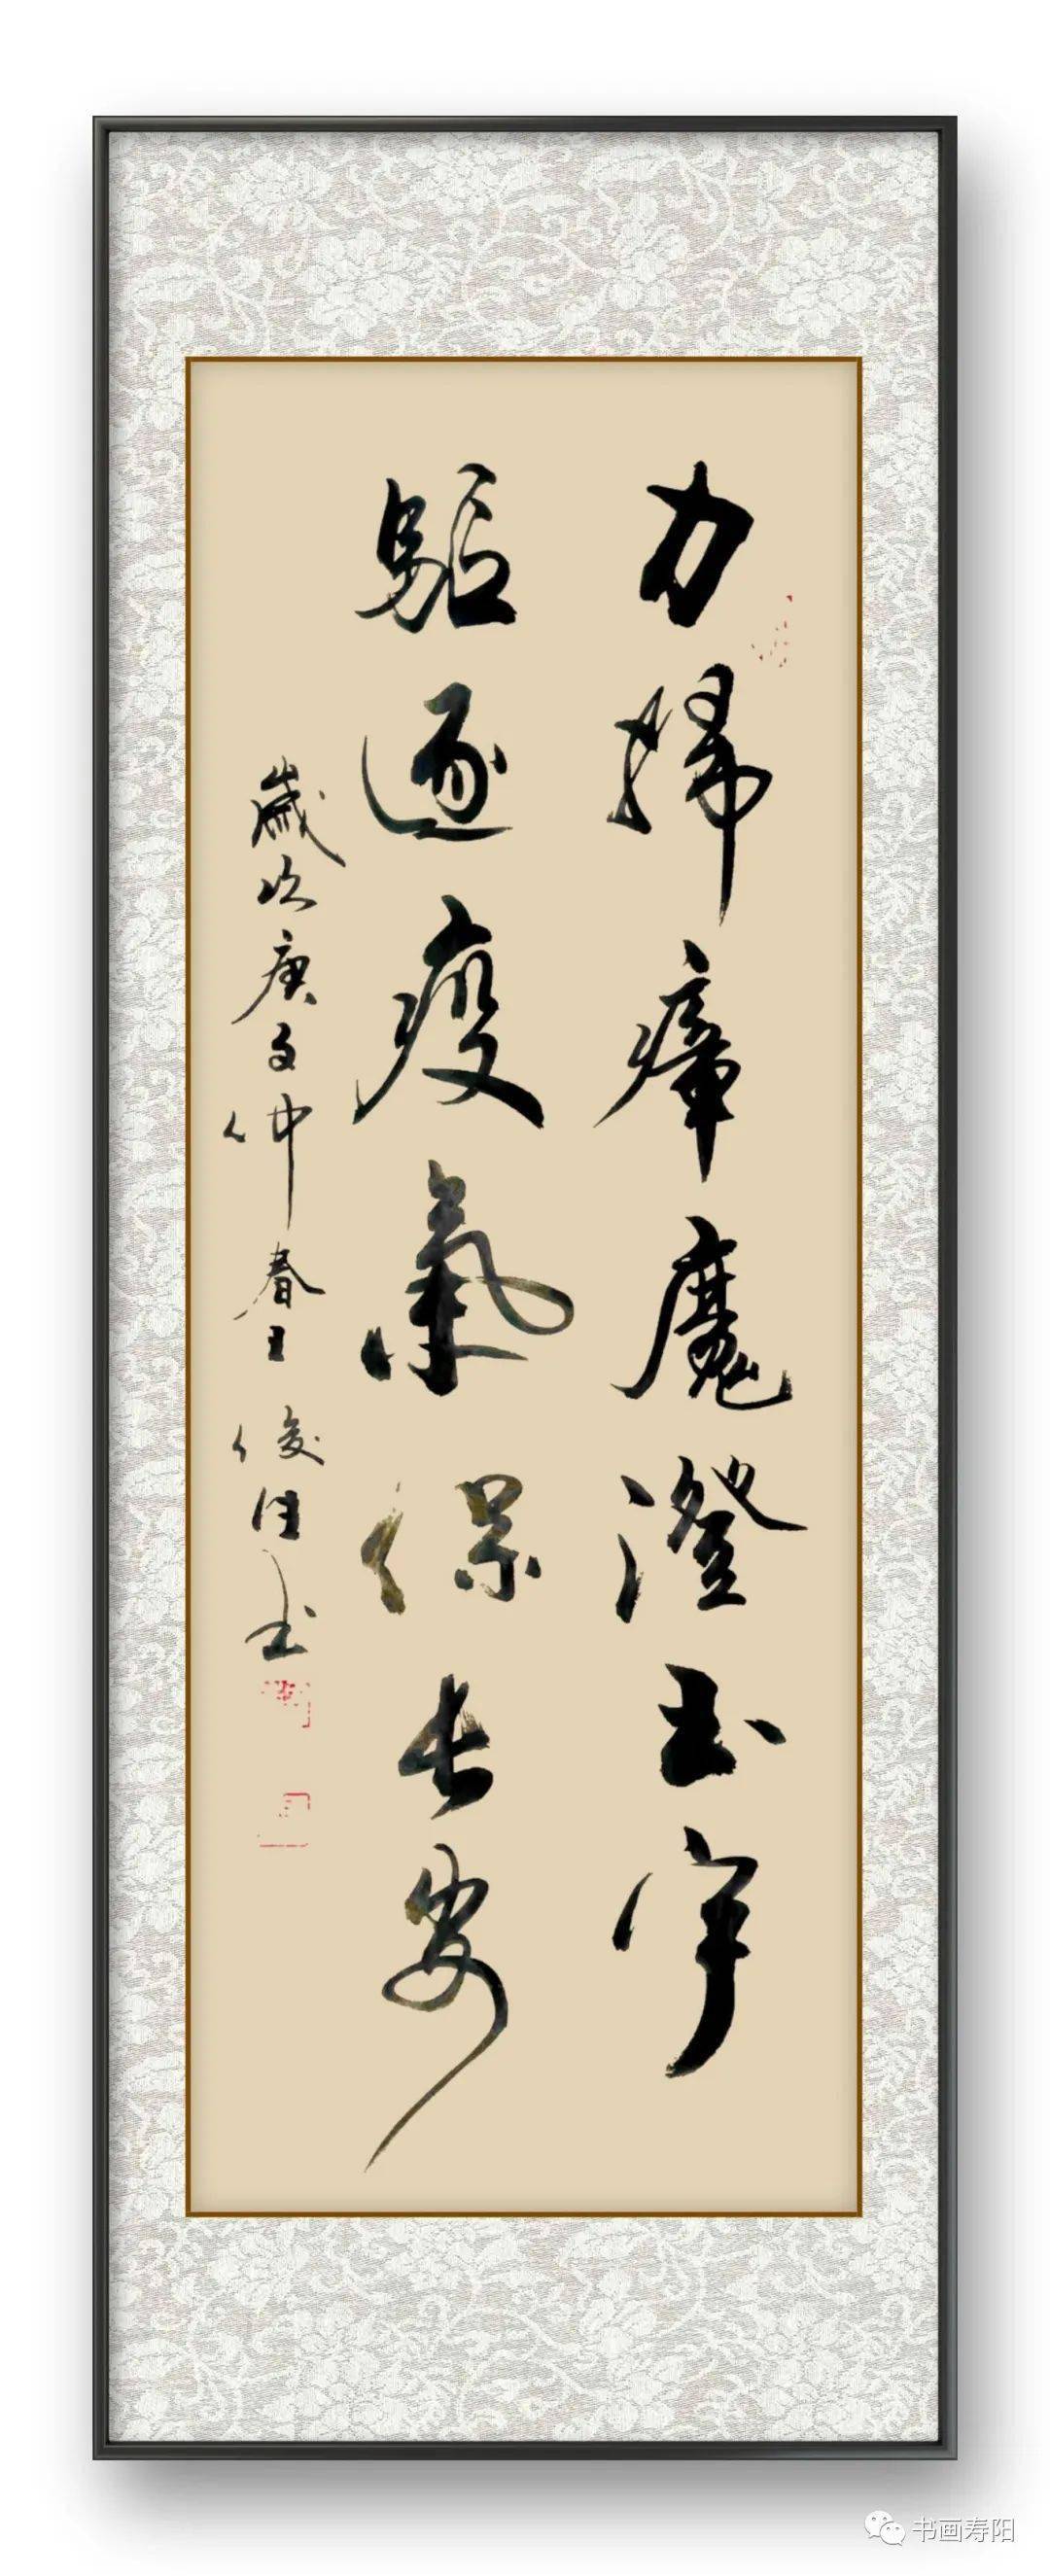 力掃瘴魔澄玉宇
驅逐疫氣保長安
歲次庚子仲春王俊住书
书画寿阳